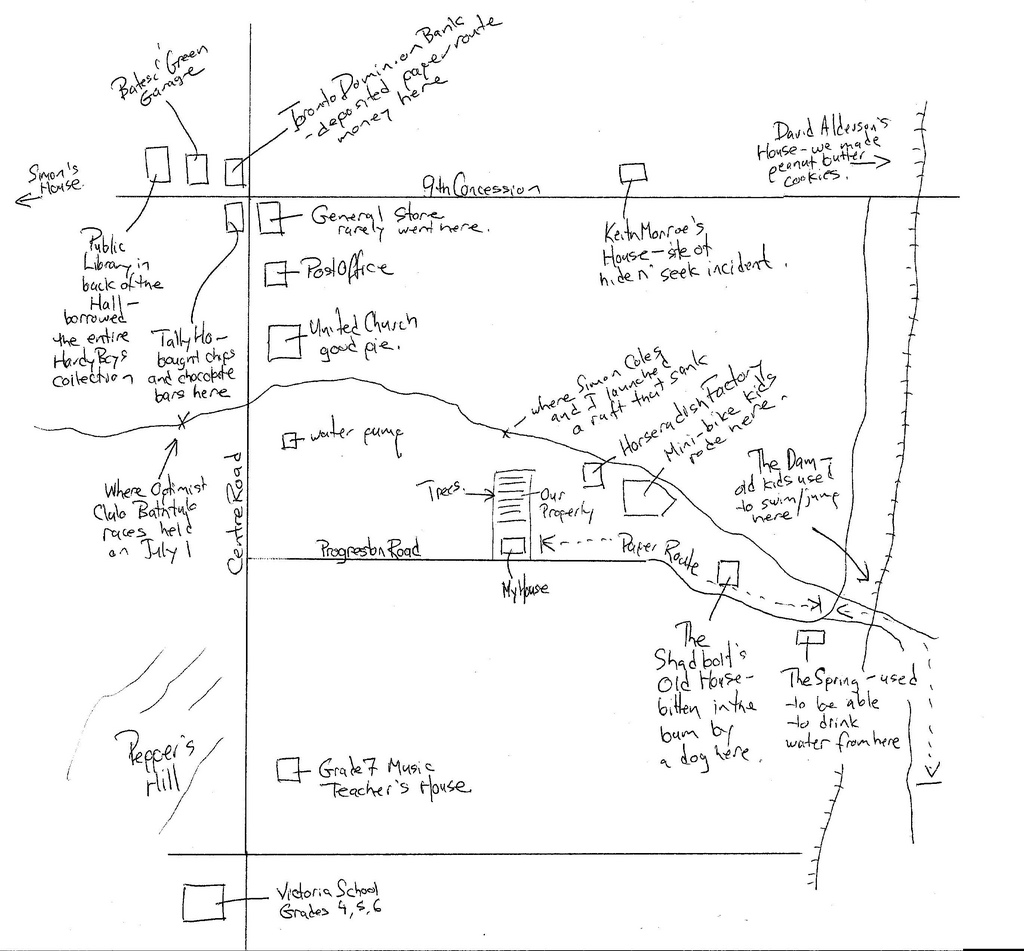 Bates' Green
Garage
Toronto Dominion Bank
-deposited paper route
money here
Simon's
House.
9th Concession
David Alderson's
House-we made
peanut butter
cookies.
General Store
rarely went here.
Keith Monroe's
House-site of
hide n' seek incident.
Public
Library in
back of the
Hall-
borrowed
the entire
Hardy Boys
collection
Post Office
Tally Ho-
bought chips
and chocolate
bars here
United Church
good pie.
where Simon Coles
and I launched
a raft that sank
Horseradish Factory
Mini-bike kids
rode here.
water pump
The Dam-
old kids used
to swim/jump
here!
Where Optimist
Club Bathtub
races held
on July 1
Centre Road
Trees.
Our
Property
Progreston Road
Paper Route
My House
The
Shadbolt's
Old House-
bitten in the
bum by
a dog here.
The Spring-used
to be able
to drink
water from here
Pepper's
Hill
Grade 7 Music
Teacher's House
Victoria School
Grades 4,5,6